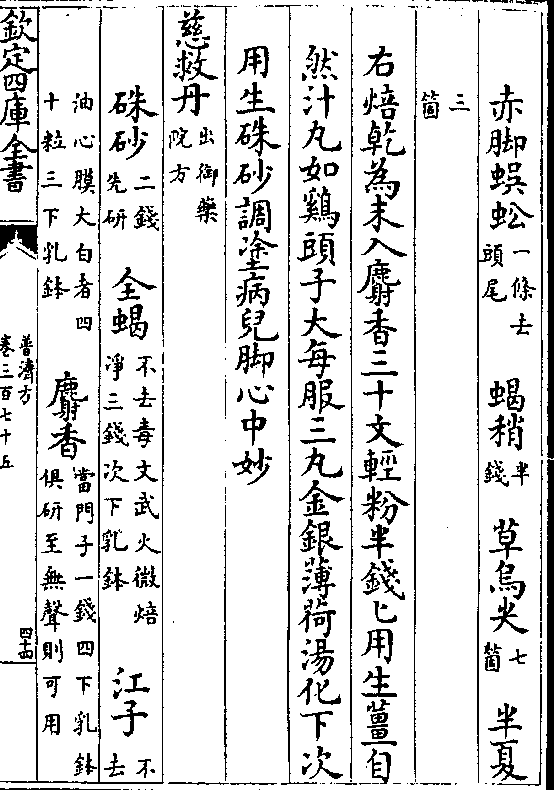 赤脚蜈蚣一條去頭尾 蝎稍半錢 草烏尖七箇 半夏
三箇
右焙乾為末入麝香三十文輕粉半錢匕用生薑自
然汁丸如鷄頭子大每服三丸金銀薄荷湯化下次
用生硃砂調塗病兒脚心中妙
慈救丹出御藥院方
硃砂二錢先研 全蝎不去毒文武火微焙淨三錢次下乳鉢 江子不去
油心膜大白者四十粒三下乳鉢 麝香當門子一錢四下乳鉢俱研至無聲則可用
欽定四庫全書
普濟方
卷三百七十五
四十四